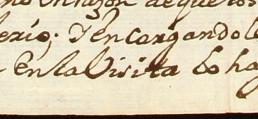 en razon de que los
erio; Y encargandole
en la Visita lo ha